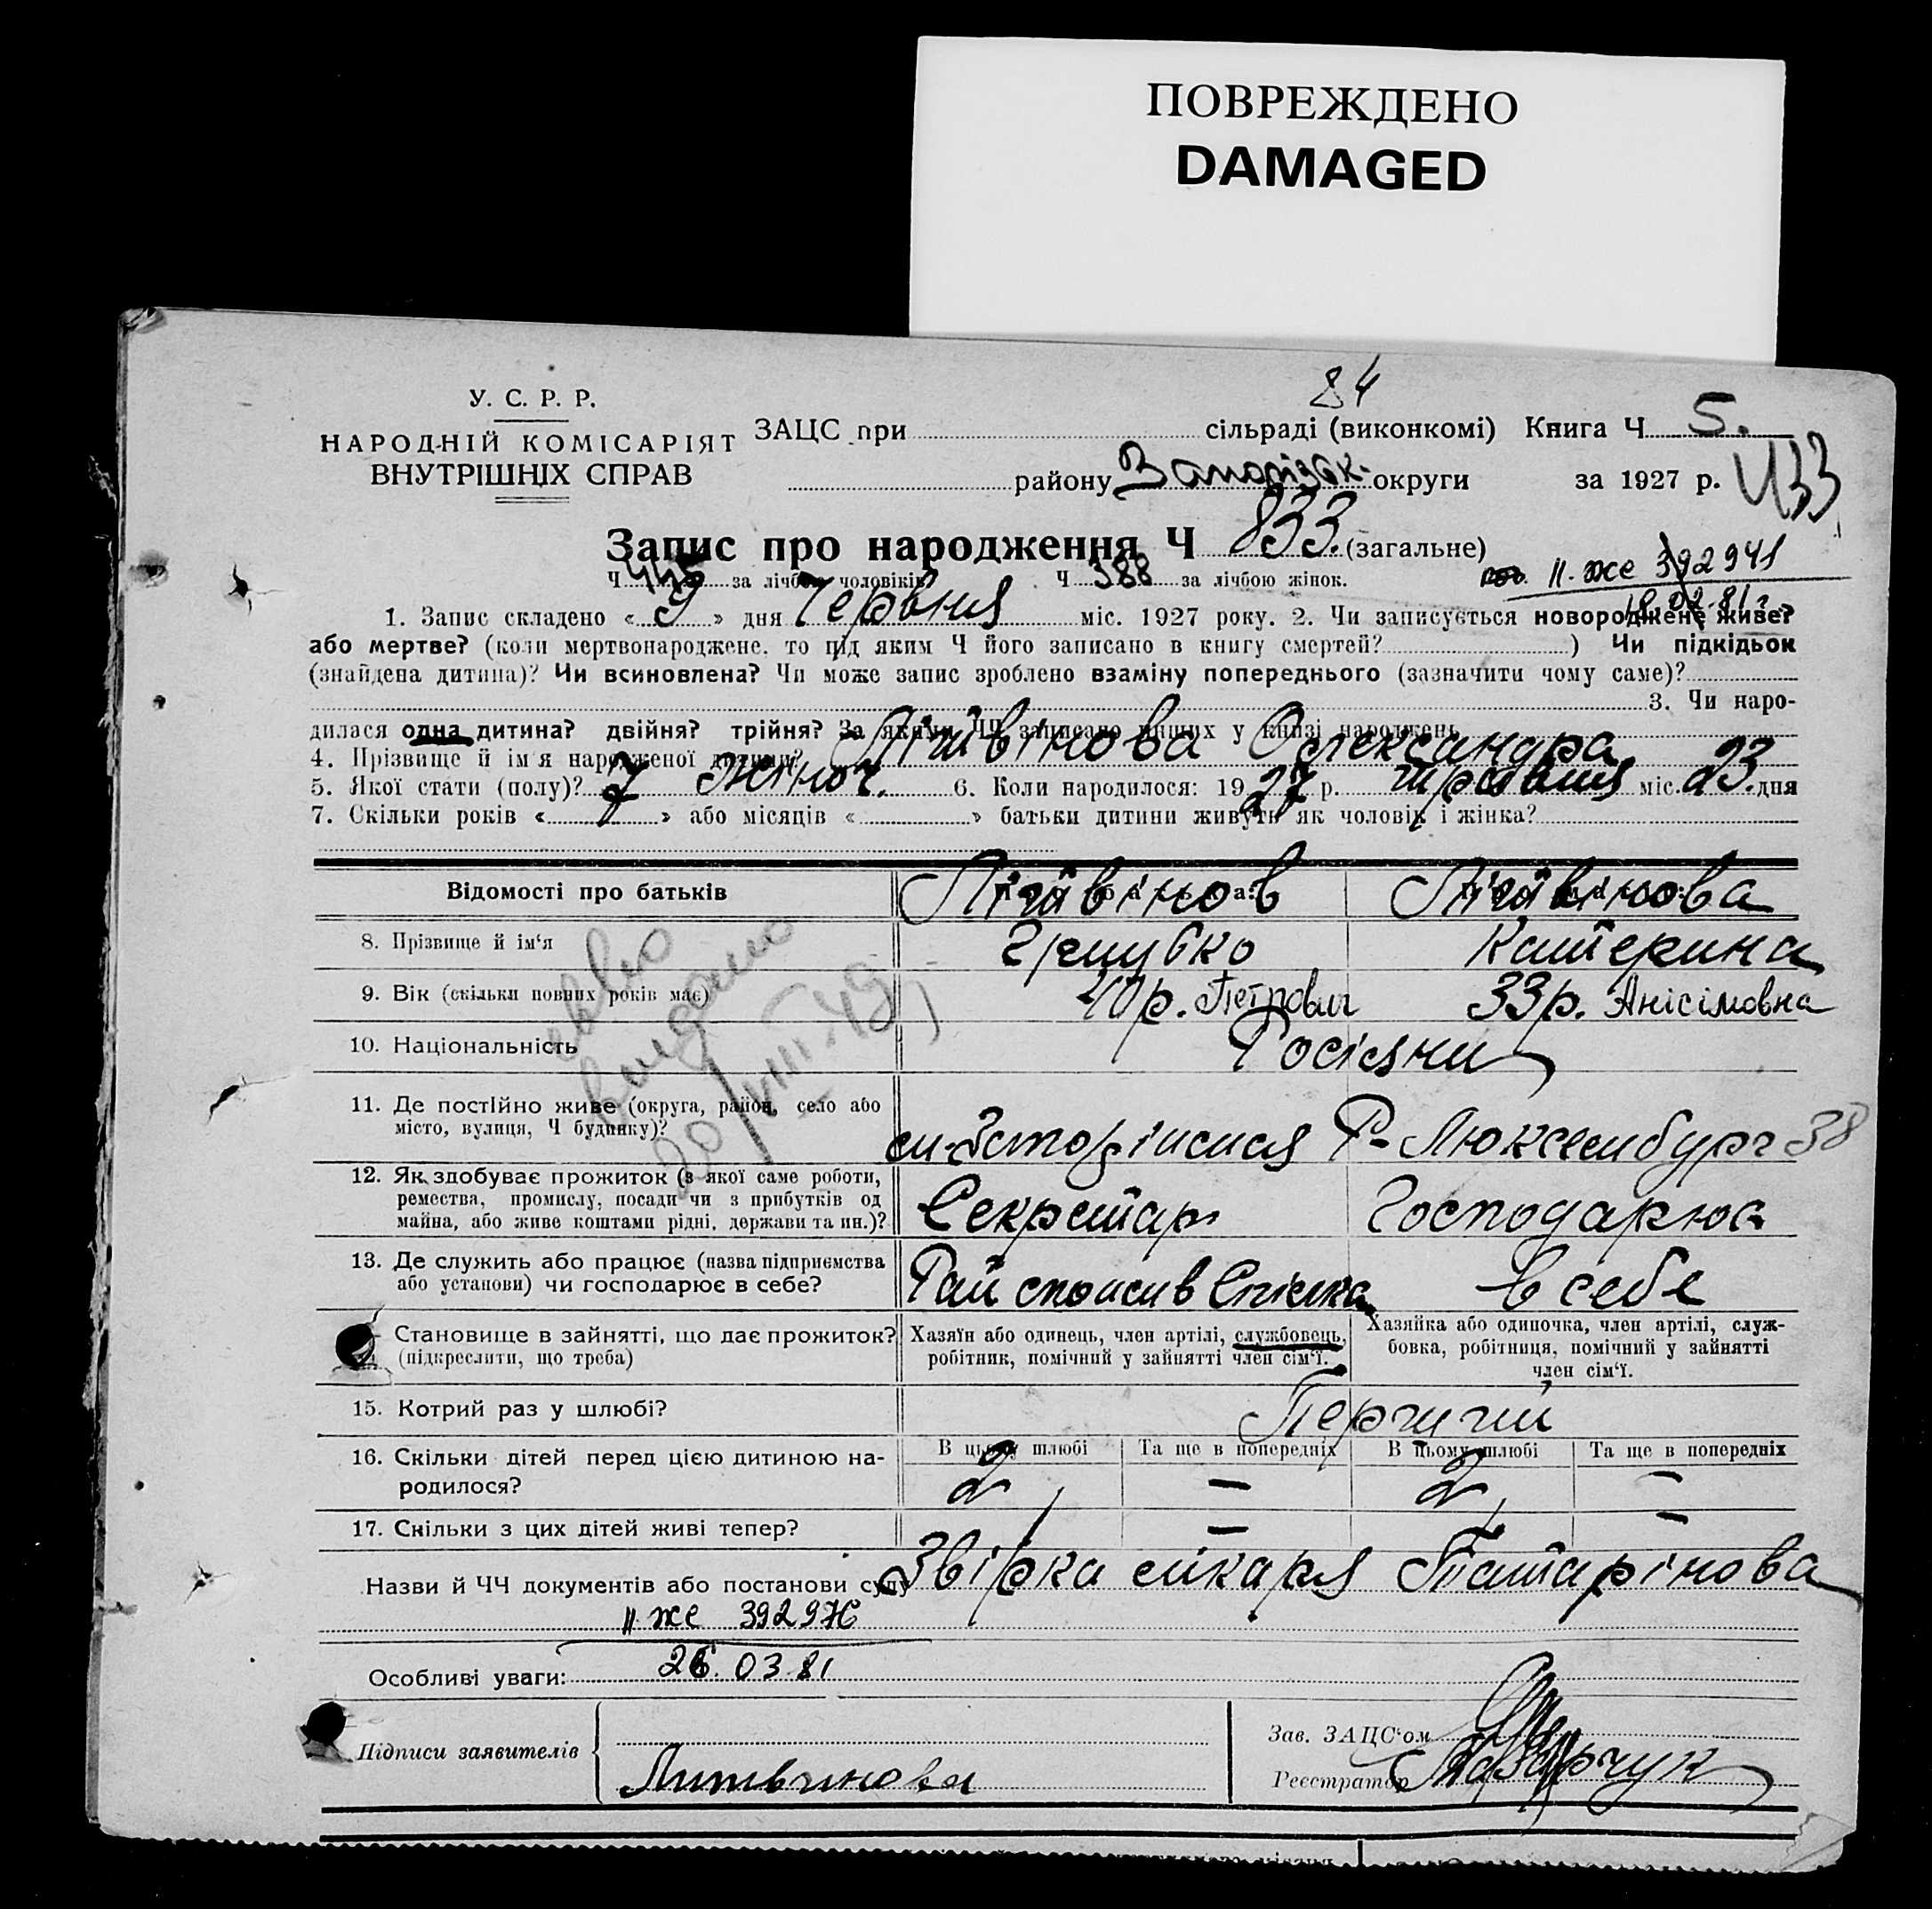 ПОВРЕЖДЕНО
DAMAGED
84
У. С. Р. Р.
НАРОДНІЙ КОМІСАРІЯТ
ВНУТРІШНІХ СПРАВ
ЗАЦС при сільраді (виконкомі) Книга Ч 5.
району Запорізьк. округи за 1927 р. 433
Запис про народження Ч 833. (загальне)
Ч 445 за лічбою чоловіків Ч 388 за лічбою жінок.
II-же 392941
18.02.81г.
1. Запис складено « 9 » дня Червня міс. 1927 року. 2. Чи записується новороджене живе?
або мертве? (коли мертвонароджене, то під яким Ч його записано в книгу смертей? ) Чи підкідьок
(знайдена дитина)? Чи всиновлена? Чи може запис зроблено взаміну попереднього (зазначити чому саме)?
3. Чи наро-
дилася одна дитина? двійня? трійня? За якими ЧЧ записано инших у книзі народжень
4. Прізвище й ім'я народженої дитини? Літвінова Олександра
5. Якої стати (полу)? жіноч. 6. Коли народилося: 1927 р. травня міс. 23. дня
7. Скільки років « » або місяців « » батьки дитини живуть як чоловік і жінка?
Відомості про батьків Літвінов Літвінова
8. Прізвище й ім'я Катерина
9. Вік (скільки повних років має) 40 р. Петрович 33 р. Анісімовна
10. Національність Росіяни
видано
20/VIII-49
11. Де постійно живе (округа, район, село або
місто, вулиця, Ч будинку)? Р-Люксембург 38
12. Як здобуває прожиток (з якої саме роботи,
ремества, промислу, посади чи з прибутків од
майна, або живе коштами рідні, держави та ин.)? Секретар Господарює
13. Де служить або працює (назва підприємства
або установи) чи господарює в себе? Рай спожив Спілка в себе
Становище в зайнятті, що дає прожиток?
(підкреслити, що треба)
Хазяїн або одинець, член артілі, службовець,
робітник, помічний у зайнятті член сім'ї.
Хазяйка або одиночка, член артілі, служ-
бовка, робітниця, помічний у зайнятті
член сім'ї.
15. Котрий раз у шлюбі?
16. Скільки дітей перед цією дитиною на-
родилося?
В цьому шлюбі Та ще в попередніх В цьому шлюбі Та ще в попередніх
2 — 2 —
17. Скільки з цих дітей живі тепер? —  —
Назви й ЧЧ документів або постанови суду Звірка лікаря Татарінова
II же 392976
Особливі уваги: 26.03 81
Підписи заявителів
Литвинова
Зав. ЗАЦС'ом
Реєстратор